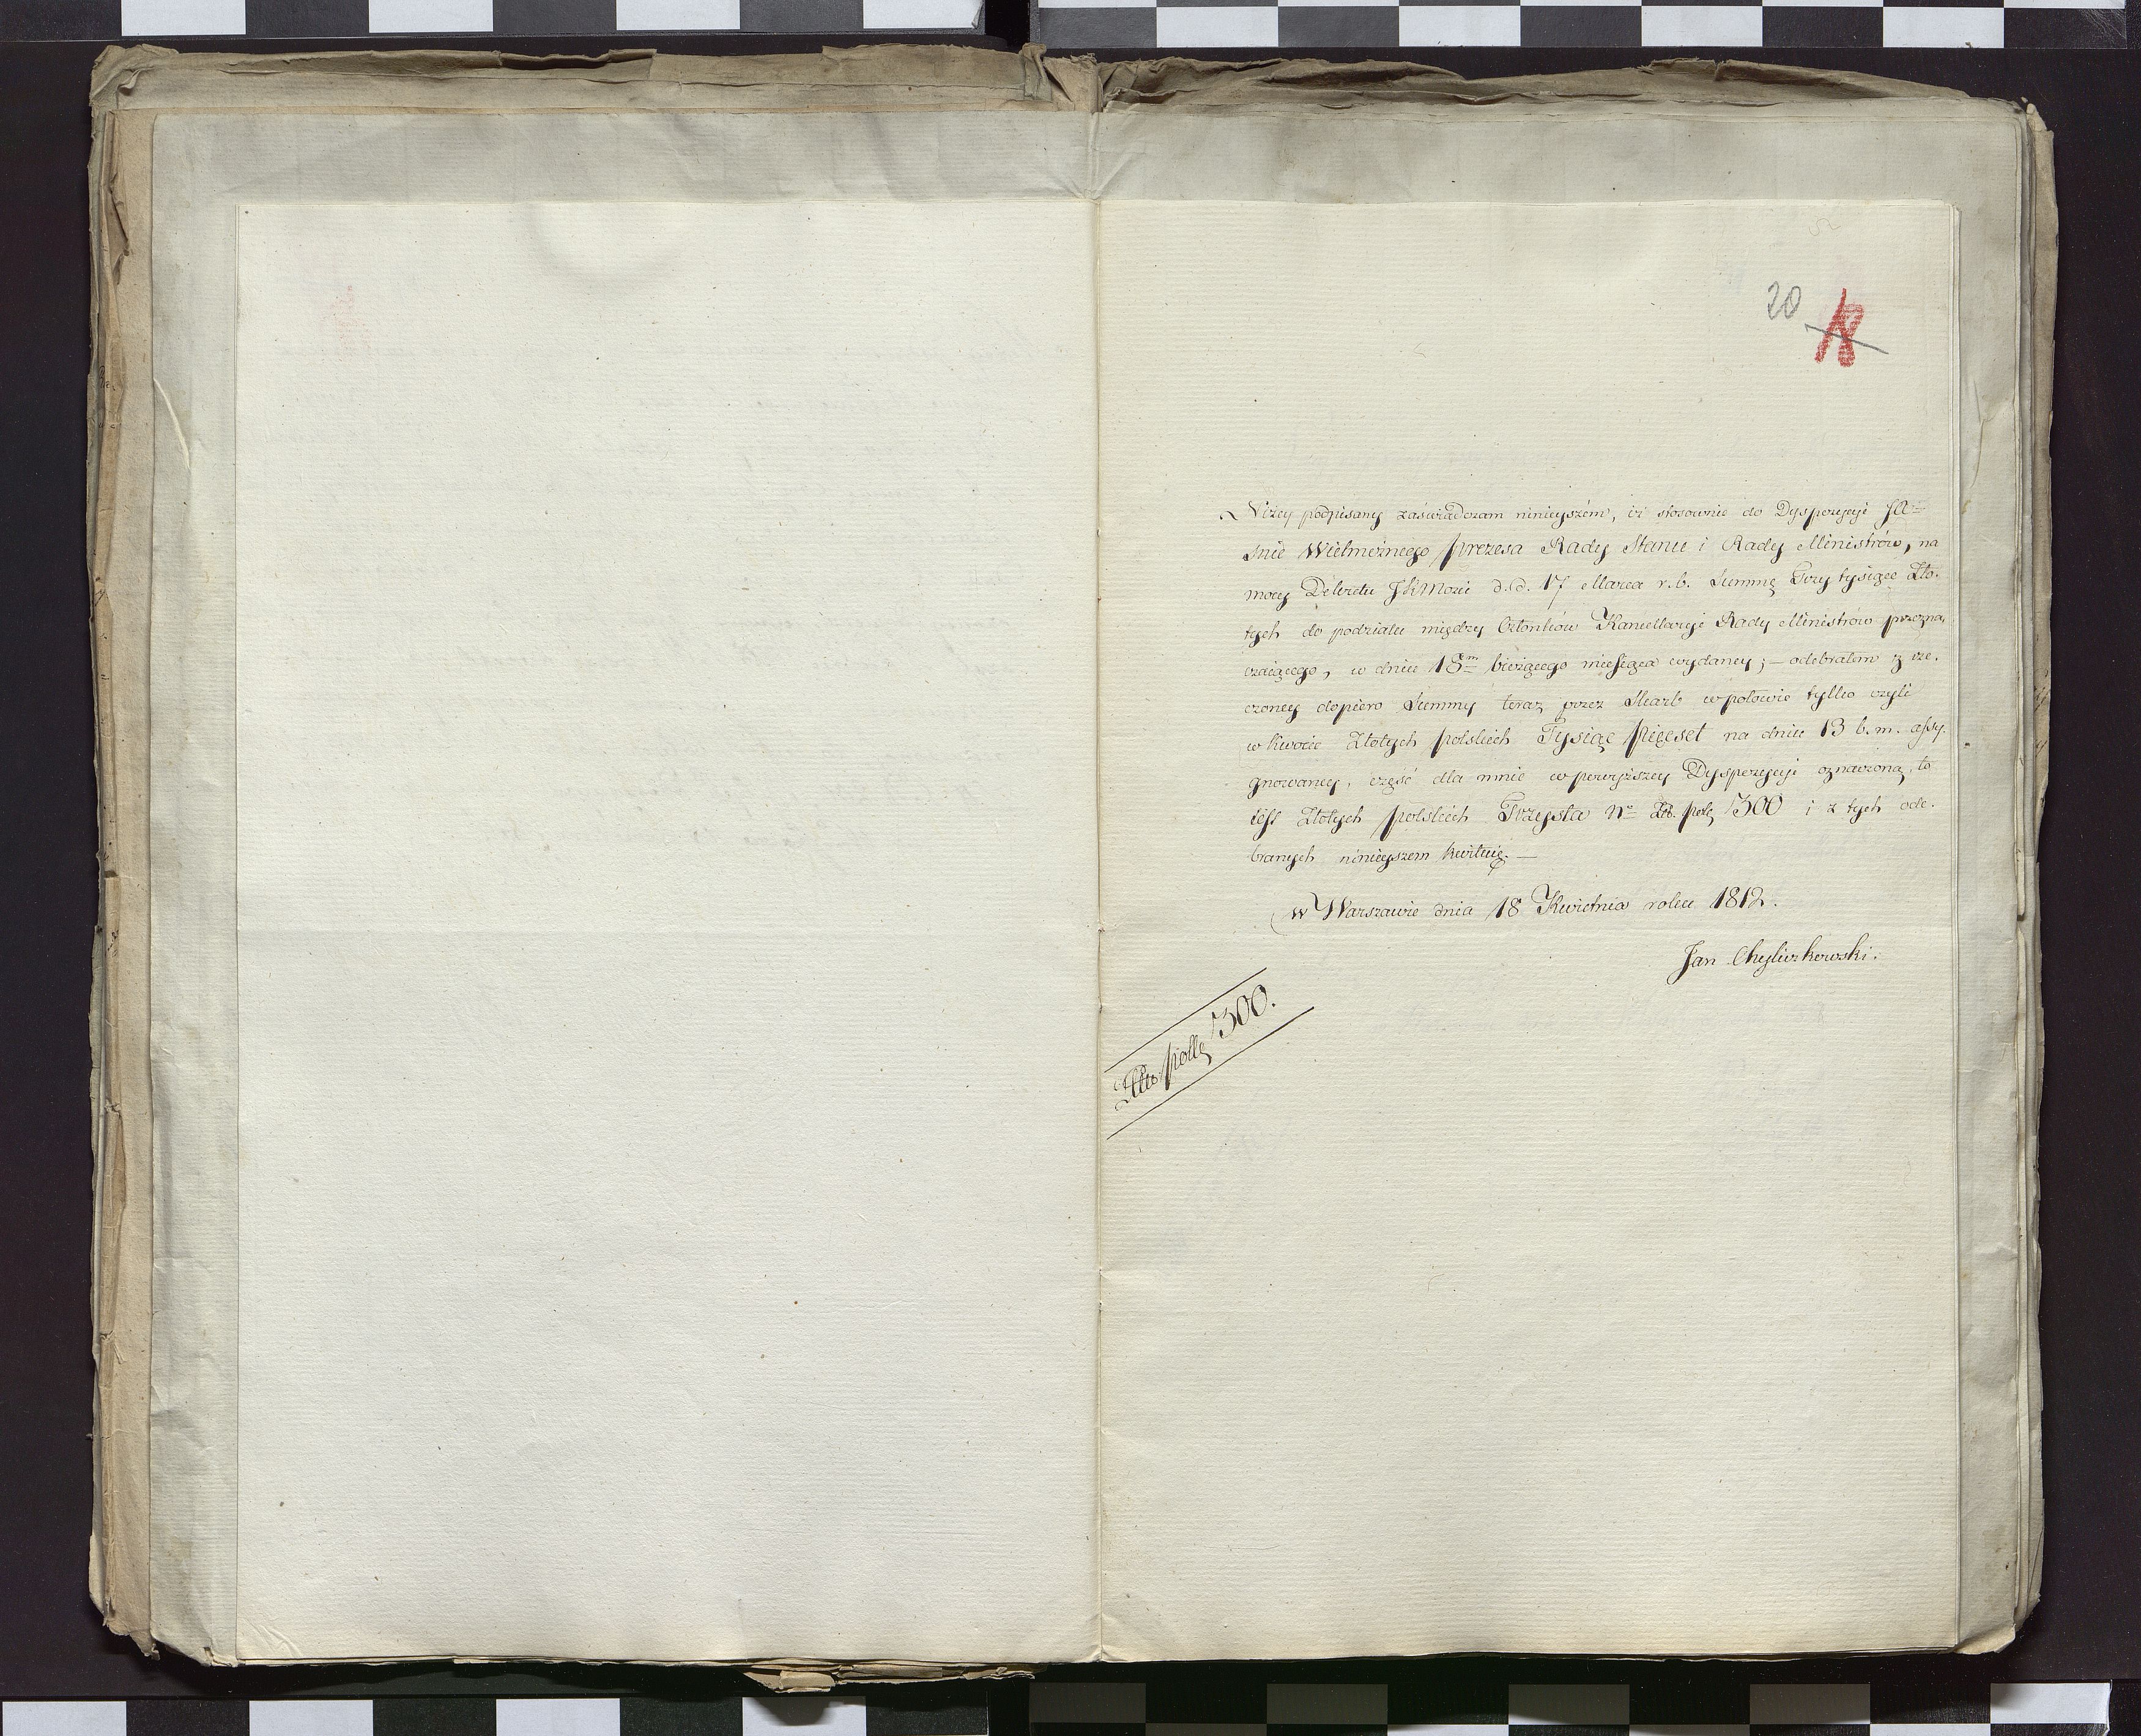 20 18
Niżey podpisany zaświadczam ninieyszém, iż stosownie do Dyspozycyi JA=
śnie Wielmożnego Prezesa Rady Stanu i Rady Ministrów, na
mocy Dekretu JKMości d.d. 17 Marca r.b. Summę Trzy tysiące Zło-
tych do podziału między Członków Kancellaryi Rady Ministrów przezna-
czaiącego, w dniu 18m bieżącego miesiąca wydaney; — odebrałem z rze-
czoney dopiero Summy teraz przez Skarb w połowie tylko czyli
w kwocie Złotych polskich Tysiąc pięcset na dniu 13 b.m. assy-
gnowaney, część dla mnie w powyższey Dyspozycyi oznaczoną, to
iest Złotych polskich Trzysta No Zł. pol. 300 i z tych ode-
branych ninieyszem kwituię. —
w Warszawie dnia 18 Kwietnia roku 1812.
Jan Chyliczkowski.
Złto polc 300.